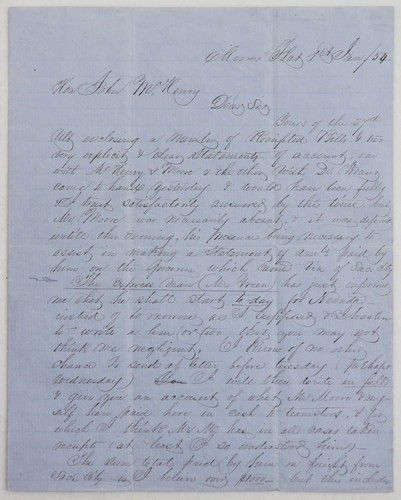 Moore's Flat 1st Jan/54
Hon John McHenry
Dear Sir
Yours of the 27th
Ult enclosing a number of Receipted Bills & two
very explicit & clear statements of account, one
with McHenry & Moore & the other with Dr
came to hand yesterday & would have been fully
& most satisfactorily answered by this time but
Mr Moore was necessarily absent, & it was deferred
until this evening, his presence being necessary to
assist in making a statement of amts paid by
him on the Groceries which came via of Sac City
The express man (Mr Green) has just informed
me that he shall start to-day for Nevada
instead of to morrow as I supposed & I hasten
to write a line or two, that you may not
think me negligent. I know of no other
chance to send a letter before tuesday (perhaps
Wednesday) I will then write in full
& give you an account of what Mr Moore & my-
self have paid here in cash to teamsters, & for
which I think Mr M. has in all cases taken
receipts (at least I so understood him)-
The sum total paid by him on freight from
Sac City is I believe over but this includes